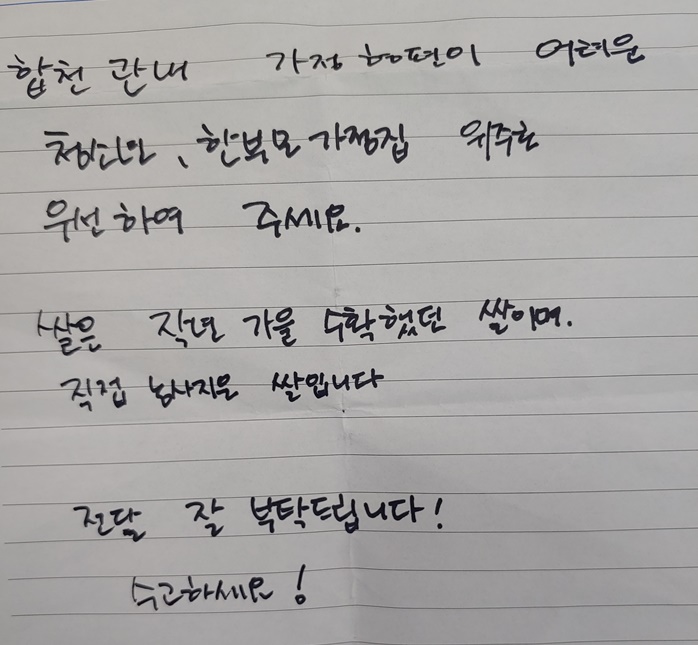 합천 관내 가정형편이 어려운
청소년, 한부모 가정집 위주로
우선하여 주세요.
쌀은 작년 가을 수확했던 쌀이며.
직접 농사지은 쌀입니다
전달 잘 부탁드립니다!
수고하세요!